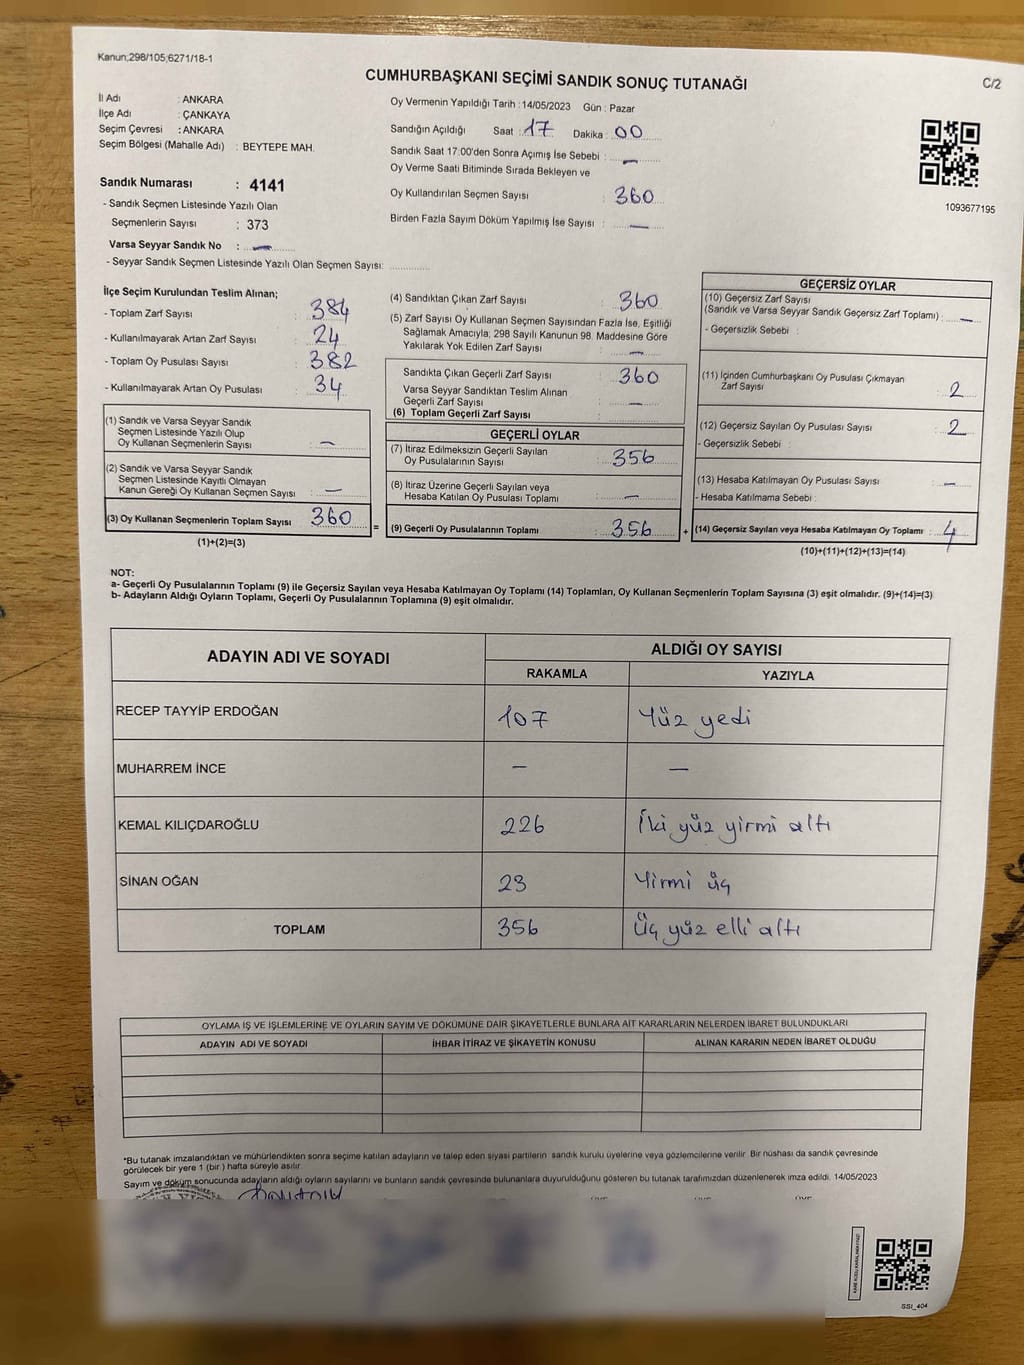 Kanun;298/105;6271/18-1
CUMHURBAŞKANI SEÇİMİ SANDIK SONUÇ TUTANAĞI
C/2
İl Adı : ANKARA
İlçe Adı : ÇANKAYA
Seçim Çevresi : ANKARA
Seçim Bölgesi (Mahalle Adı) : BEYTEPE MAH.
Sandık Numarası : 4141
- Sandık Seçmen Listesinde Yazılı Olan
Seçmenlerin Sayısı : 373
Varsa Seyyar Sandık No : —
- Seyyar Sandık Seçmen Listesinde Yazılı Olan Seçmen Sayısı: ............
Oy Vermenin Yapıldığı Tarih : 14/05/2023 Gün : Pazar
Sandığın Açıldığı Saat : 17 Dakika : 00
Sandık Saat 17:00'den Sonra Açımış İse Sebebi : —
Oy Verme Saati Bitiminde Sırada Bekleyen ve
Oy Kullandırılan Seçmen Sayısı : 360
Birden Fazla Sayım Döküm Yapılmış İse Sayısı : —
1093677195
İlçe Seçim Kurulundan Teslim Alınan;
- Toplam Zarf Sayısı : 384
- Kullanılmayarak Artan Zarf Sayısı : 24
- Toplam Oy Pusulası Sayısı : 382
- Kullanılmayarak Artan Oy Pusulası : 34
(1) Sandık ve Varsa Seyyar Sandık
Seçmen Listesinde Yazılı Olup
Oy Kullanan Seçmenlerin Sayısı : —
(2) Sandık ve Varsa Seyyar Sandık
Seçmen Listesinde Kayıtlı Olmayan
Kanun Gereği Oy Kullanan Seçmen Sayısı : —
(3) Oy Kullanan Seçmenlerin Toplam Sayısı 360
(1)+(2)=(3)
=
(4) Sandıktan Çıkan Zarf Sayısı : 360
(5) Zarf Sayısı Oy Kullanan Seçmen Sayısından Fazla İse, Eşitliği
Sağlamak Amacıyla; 298 Sayılı Kanunun 98. Maddesine Göre
Yakılarak Yok Edilen Zarf Sayısı : —
Sandıkta Çıkan Geçerli Zarf Sayısı : 360
Varsa Seyyar Sandıktan Teslim Alınan
Geçerli Zarf Sayısı : —
(6) Toplam Geçerli Zarf Sayısı :
GEÇERLİ OYLAR
(7) İtiraz Edilmeksizin Geçerli Sayılan
Oy Pusulalarının Sayısı : 356
(8) İtiraz Üzerine Geçerli Sayılan veya
Hesaba Katılan Oy Pusulası Toplamı : —
(9) Geçerli Oy Pusulalarının Toplamı : 356
+
GEÇERSİZ OYLAR
(10) Geçersiz Zarf Sayısı
(Sandık ve Varsa Seyyar Sandık Geçersiz Zarf Toplamı) : —
- Geçersizlik Sebebi :
(11) İçinden Cumhurbaşkanı Oy Pusulası Çıkmayan
Zarf Sayısı : 2
(12) Geçersiz Sayılan Oy Pusulası Sayısı : 2
- Geçersizlik Sebebi :
(13) Hesaba Katılmayan Oy Pusulası Sayısı : —
- Hesaba Katılmama Sebebi :
(14) Geçersiz Sayılan veya Hesaba Katılmayan Oy Toplamı : 4
(10)+(11)+(12)+(13)=(14)
NOT:
a- Geçerli Oy Pusulalarının Toplamı (9) ile Geçersiz Sayılan veya Hesaba Katılmayan Oy Toplamı (14) Toplamları, Oy Kullanan Seçmenlerin Toplam Sayısına (3) eşit olmalıdır. (9)+(14)=(3)
b- Adayların Aldığı Oyların Toplamı, Geçerli Oy Pusulalarının Toplamına (9) eşit olmalıdır.
ADAYIN ADI VE SOYADI
ALDIĞI OY SAYISI
RAKAMLA YAZIYLA
RECEP TAYYİP ERDOĞAN 107 Yüz yedi
MUHARREM İNCE — —
KEMAL KILIÇDAROĞLU 226 İki yüz yirmi altı
SİNAN OĞAN 23 Yirmi üç
TOPLAM 356 Üç yüz elli altı
OYLAMA İŞ VE İŞLEMLERİNE VE OYLARIN SAYIM VE DÖKÜMÜNE DAİR ŞİKAYETLERLE BUNLARA AİT KARARLARIN NELERDEN İBARET BULUNDUKLARI
ADAYIN ADI VE SOYADI İHBAR İTİRAZ VE ŞİKAYETİN KONUSU ALINAN KARARIN NEDEN İBARET OLDUĞU
*Bu tutanak imzalandıktan ve mühürlendikten sonra seçime katılan adayların ve talep eden siyasi partilerin sandık kurulu üyelerine veya gözlemcilerine verilir. Bir nüshası da sandık çevresinde
görülecek bir yere 1 (bir ) hafta süreyle asılır.
Sayım ve döküm sonucunda adayların aldığı oyların sayılarını ve bunların sandık çevresinde bulunanlara duyurulduğunu gösteren bu tutanak tarafımızdan düzenlenerek imza edildi. 14/05/2023
SSI_404